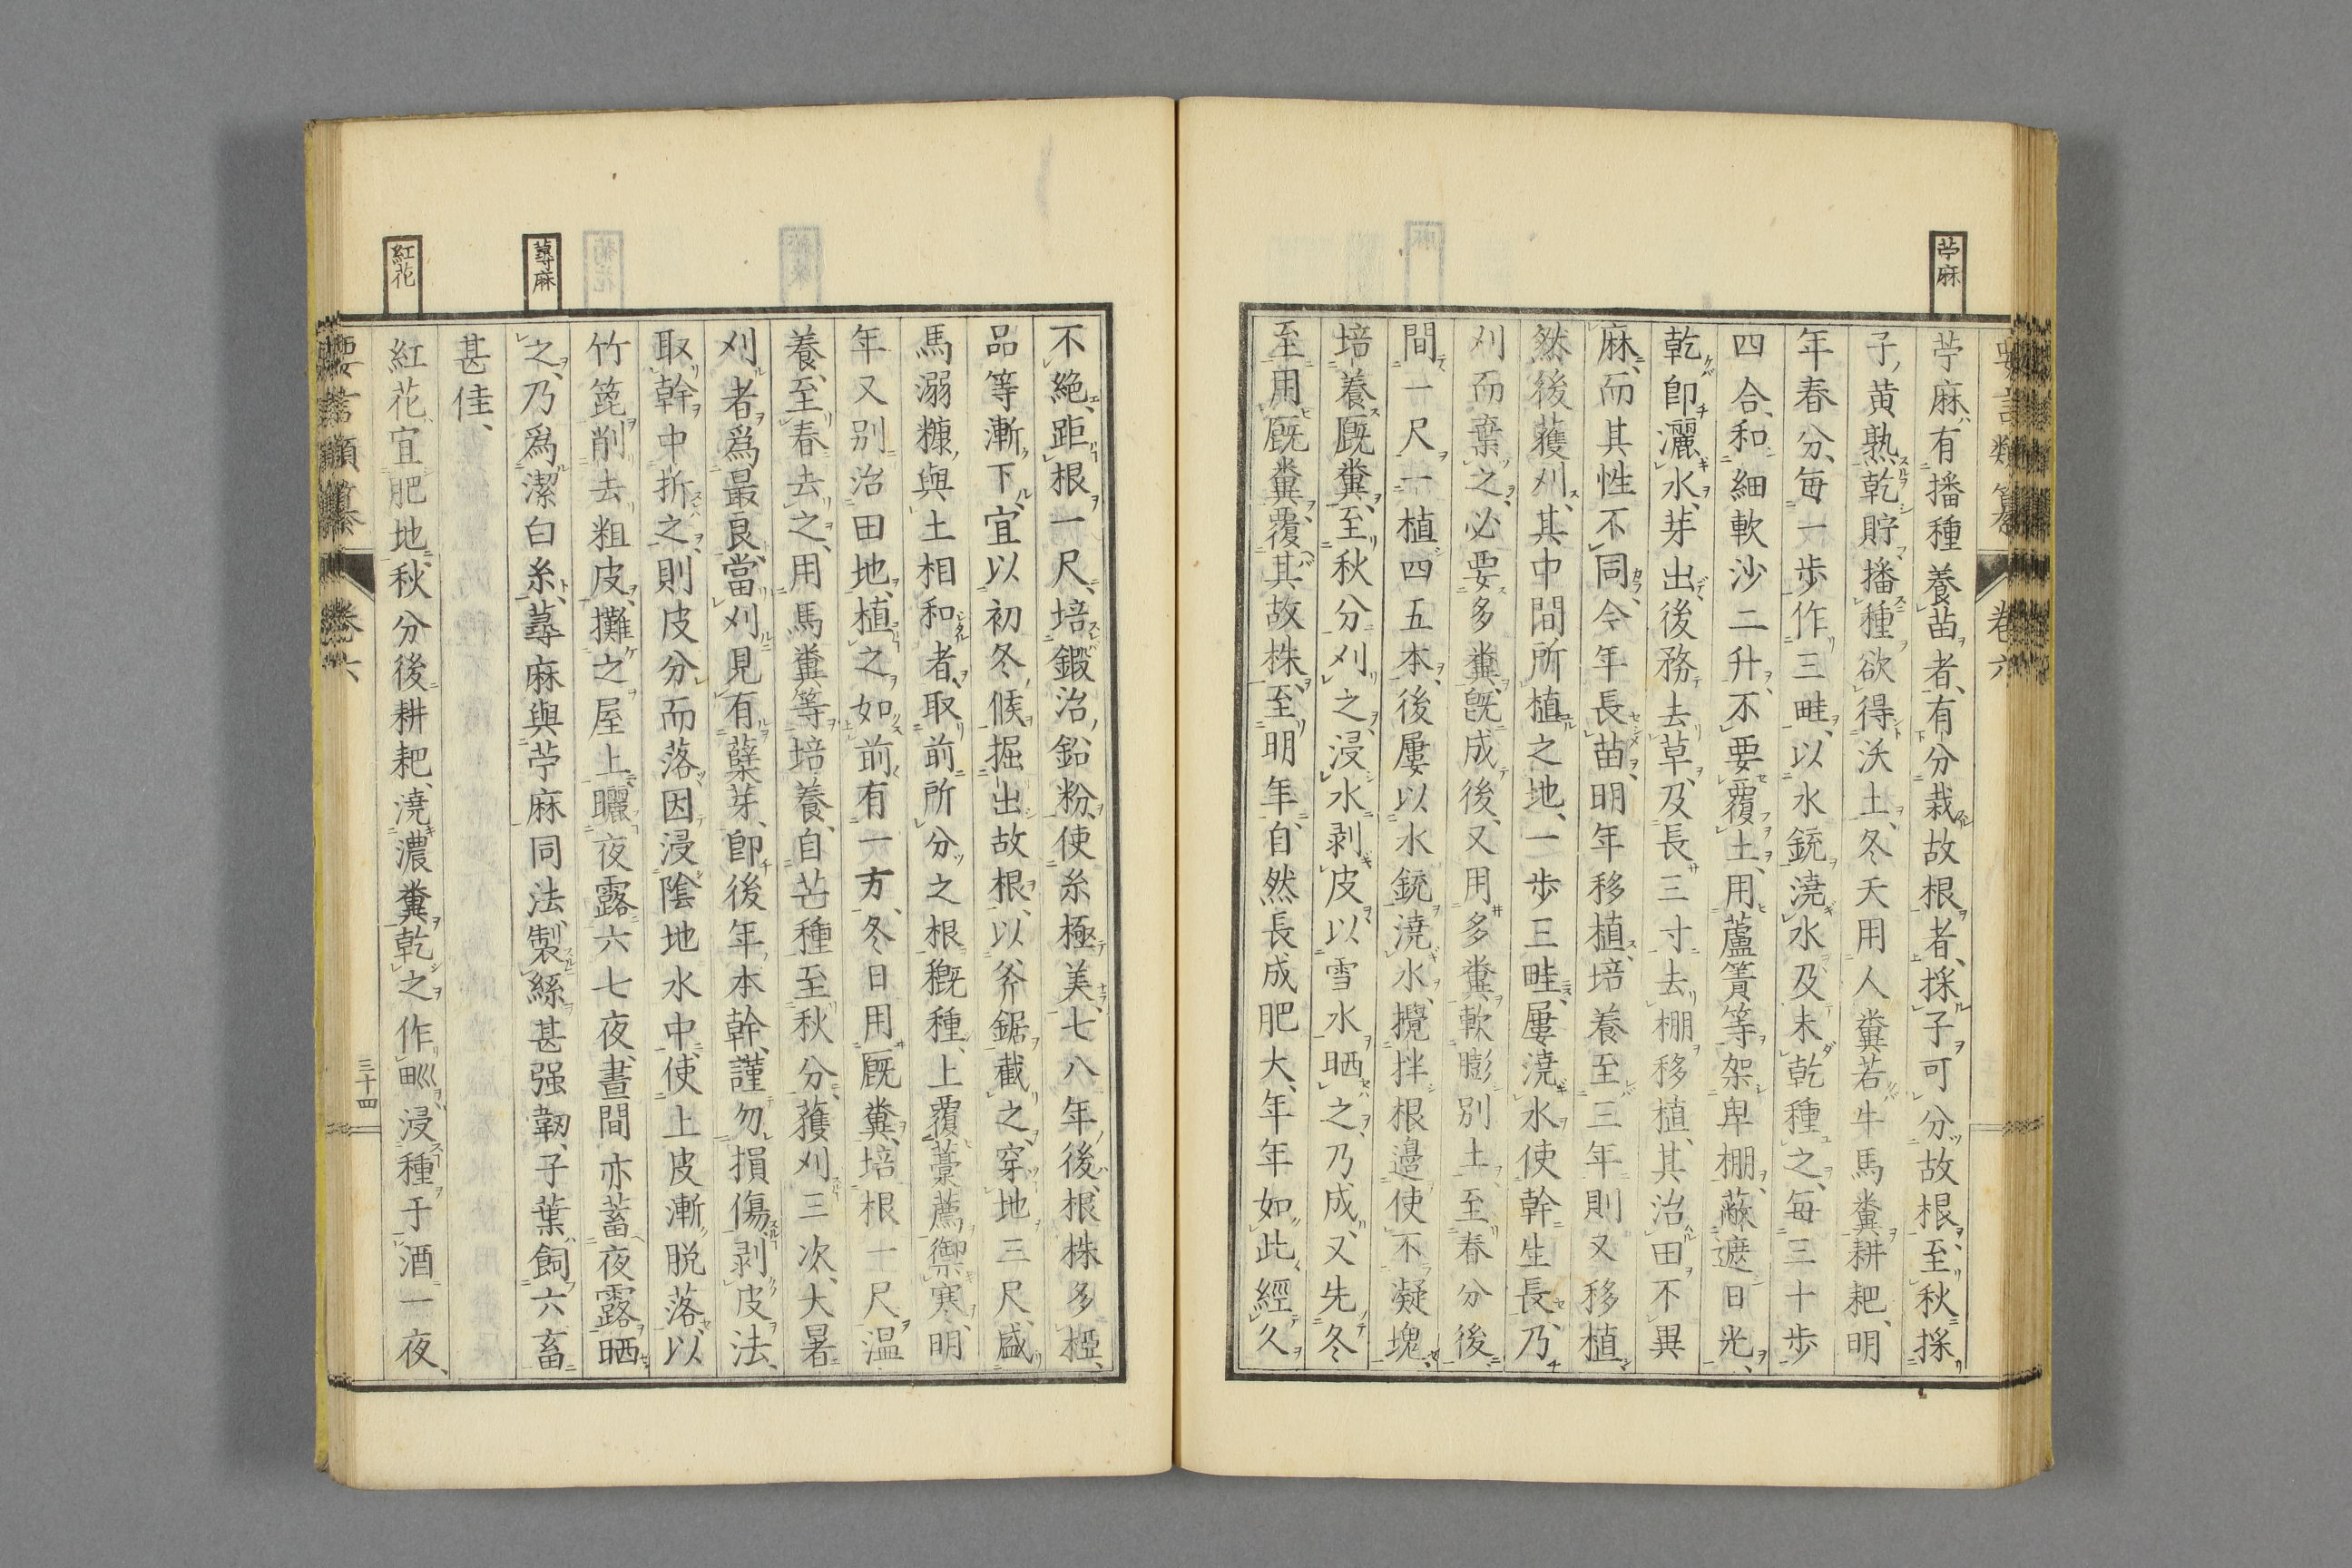 苧麻
苧麻、有播種養苗者、有分栽故根者、採子可分故根、至秋採
子、黄熟、乾貯播種欲得沃土、冬天用人糞若牛馬糞耕耙、明
年春分、毎一歩作三畦、以水銃澆水及未乾種之、毎三十歩
四合、和細軟沙二升、不要覆土、用蘆簀等架卑棚、蔽遮日光、
乾即灑水、芽出後務去草、及長三寸去棚移植、其治田不異
麻、而其性不同、今年長苗、明年移植、培養至三年則又移植
然後穫刈、其中間所植之地、一歩三畦、屢澆水使幹生長、乃
刈而棄之、必要多糞、既成後、又用多糞、軟膨別土、至春分後
間一尺一植四五本、後屢以水銃澆水、攪拌根邉使不凝塊、
培養廐糞、至秋分刈之、浸水剥皮以雪水晒之、乃成、又先冬
至用廐糞、覆其故株、至明年、自然長成肥大、年年如此、經久
不絶、距根一尺、培鍜冶、鉛粉、使糸極美、七八年後、根株多椏、
品等漸下、宜以初冬候掘出故根、以斧鋸截之、穿地三尺、盛
馬溺糠、與土相和者、取前所分之根穊種、上覆藁薦、禦寒、明
年又別治田地、植之如前有一方、冬日用廐糞、培根一尺、温
養、至春去之、用馬糞等培養、自芒種至秋分、穫刈三次、大暑
刈者爲最良、當刈見有蘖芽、即後年本幹、謹勿損傷、剥皮法、
取幹中折之、則皮分而落、因浸陰地水中、使上皮漸脱落以
竹篦削去粗皮、攤之屋上、曬夜露六七夜、晝間亦蓄夜露晒
之、乃爲潔白糸、蕁麻與苧麻同法、製絲甚强韌、子葉飼六畜
甚佳、
紅花宜肥地、秋分後耕耙、澆濃糞、乾之作甽、浸種于酒一夜、
蕁麻
紅花
卷六
三十四